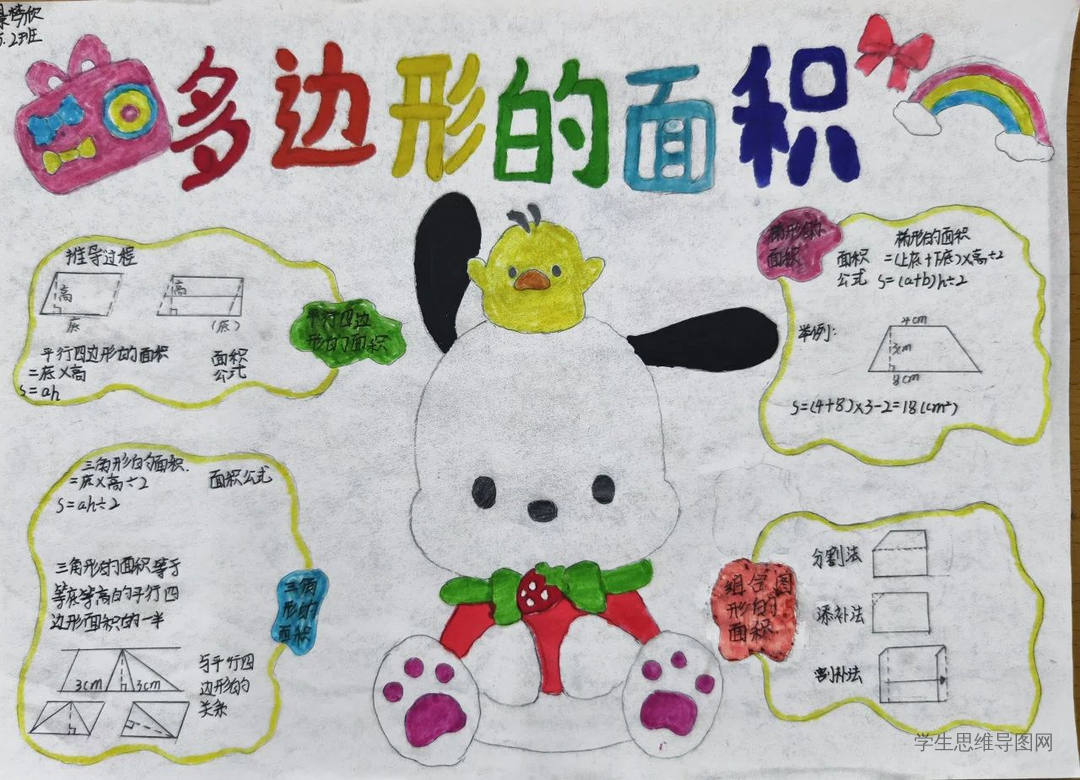 5.2班
多边形的面积
推导过程
高
底
高
(底)
平行四边形的面积
=底×高
S=ah
面积
公式
平行四边
形的面积
梯形的
面积
面积
公式
梯形的面积
=(上底+下底)×高÷2
S=(a+b)h÷2
举例:
4cm
3cm
8cm
S=(4+8)×3-2=18(cm²)
三角形的面积.
=底×高÷2
S=ah÷2
面积公式
三角形的面积等于
等底等高的平行四
边形面积的一半
三角
形的
面积
3cm
3cm
与平行四
边形的
关系
组合图
形的
面积
分割法
添补法
割补法
学生思维导图网